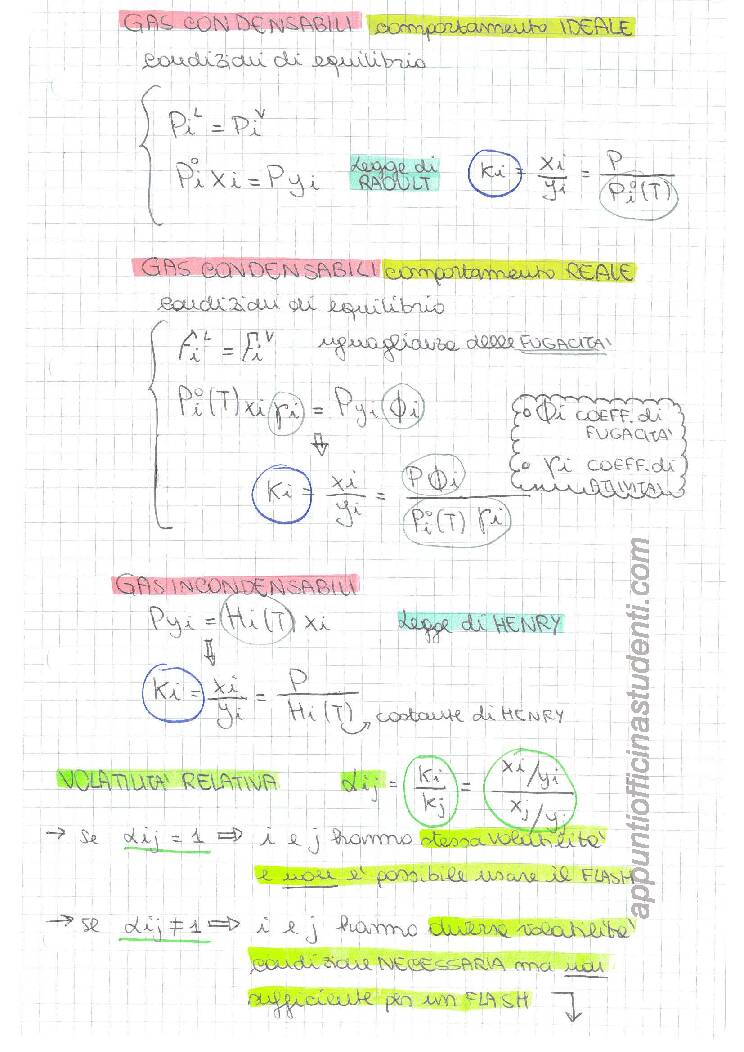 GAS CONDENSABILI comportamento IDEALE
condizioni di equilibrio
Pi^L = Pi^V
Pi° xi = P yi Legge di RAOULT Ki = xi/yi = P/Pi°(T)
GAS CONDENSABILI comportamento REALE
condizioni di equilibrio
f̂i^L = f̂i^V uguaglianza delle FUGACITA'
Pi°(T) xi γi = P yi ϕi
⇓
Ki = xi/yi = P ϕi / Pi°(T) γi
o ϕi COEFF. di
FUGACITA'
o γi COEFF. di
ATTIVITA'
GAS INCONDENSABILI
P yi = Hi(T) xi Legge di HENRY
⇓
Ki = xi/yi = P/Hi(T) → costante di HENRY
VOLATILITA' RELATIVA αij = Ki/Kj = (xi/yi)/(xj/yj)
→ se αij = 1 ⇒ i e j hanno stessa volatilità
e non e' possibile usare il FLASH
→ se αij ≠ 1 ⇒ i e j hanno diverse volatilita'
condizione NECESSARIA ma non
sufficiente per un FLASH
appuntiofficinastudenti.com